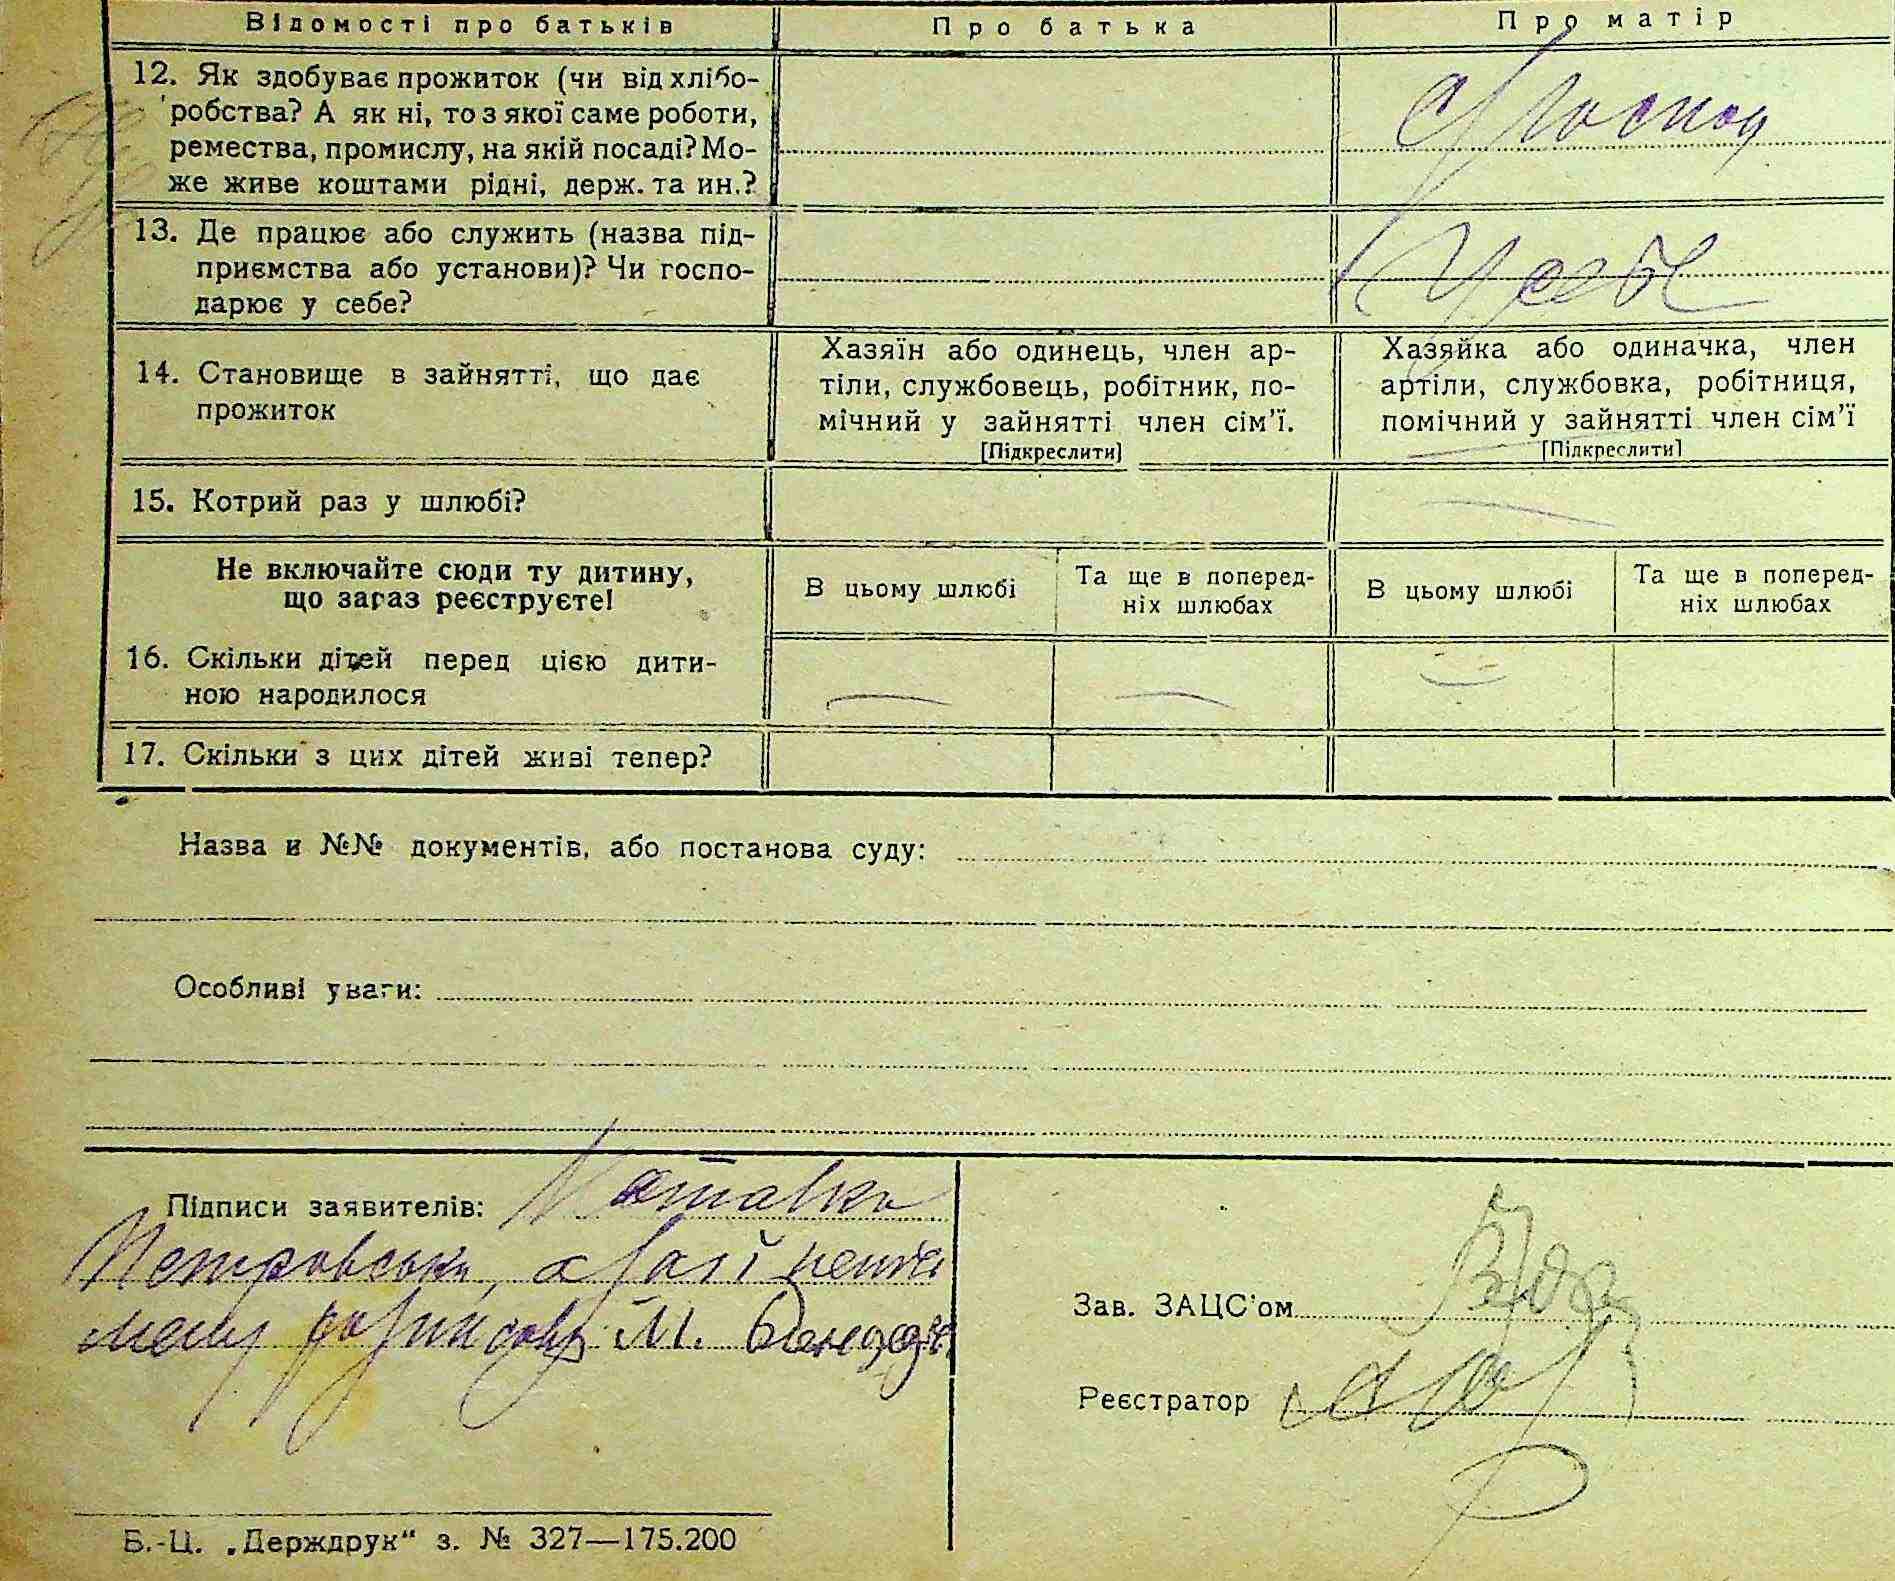 Відомості про батьків
Про батька
Про матір
12. Як здобуває прожиток (чи від хлібо-
робства? А як ні, то з якої саме роботи,
ремества, промислу, на якій посаді? Мо-
же живе коштами рідні, держ. та ин.?
13. Де працює або служить (назва під-
приємства або установи)? Чи госпо-
дарює у себе?
У себе
14. Становище в зайнятті, що дає
прожиток
Хазяїн або одинець, член ар-
тіли, службовець, робітник, по-
мічний у зайнятті член сім’ї.
[Підкреслити]
Хазяйка або одиначка, член
артіли, службовка, робітниця,
помічний у зайнятті член сім’ї
[Підкреслити]
15. Котрий раз у шлюбі?
Не включайте сюди ту дитину,
що зараз реєструєте!
В цьому шлюбі
Та ще в поперед-
ніх шлюбах
В цьому шлюбі
Та ще в поперед-
ніх шлюбах
16. Скільки дітей перед цією дити-
ною народилося
17. Скільки з цих дітей живі тепер?
Назва и №№ документів, або постанова суду:
Особливі уваги:
Підписи заявителів:
Петровська, а
М.
Зав. ЗАЦС’ом
Реєстратор
Б.-Ц. „Держдрук“ з. № 327—175.200